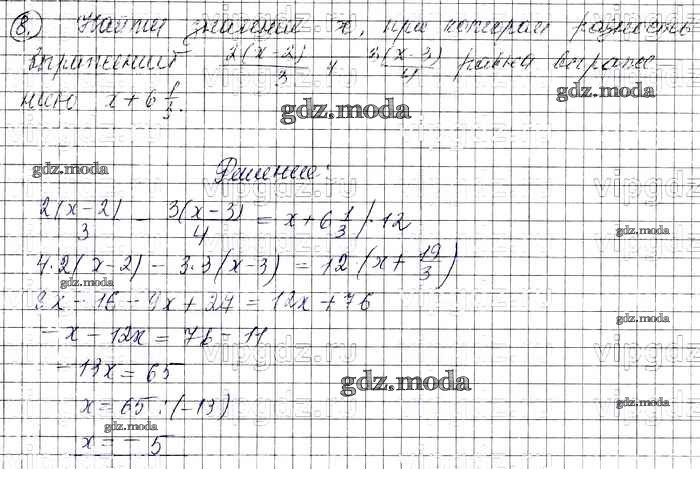 8. Найти значения x, при котором разность
выражений 2(x-2)/3 и 3(x-3)/4 равна выраже-
нию x+6 1/3.
gdz.moda
gdz.moda
gdz.moda
Решение:
vipgdz.ru
vipgdz.ru
2(x-2)/3 - 3(x-3)/4 = x+6 1/3 /·12
gdz.moda
4·2(x-2) - 3·3(x-3) = 12(x+19/3)
gdz.moda
8x - 16 - 9x + 27 = 12x + 76
gdz.moda
-x - 12x = 76 - 11
vipgdz.ru
vipgdz.ru
-13x = 65
gdz.moda
x = 65 : (-13)
gdz.moda
gdz.moda
x = -5